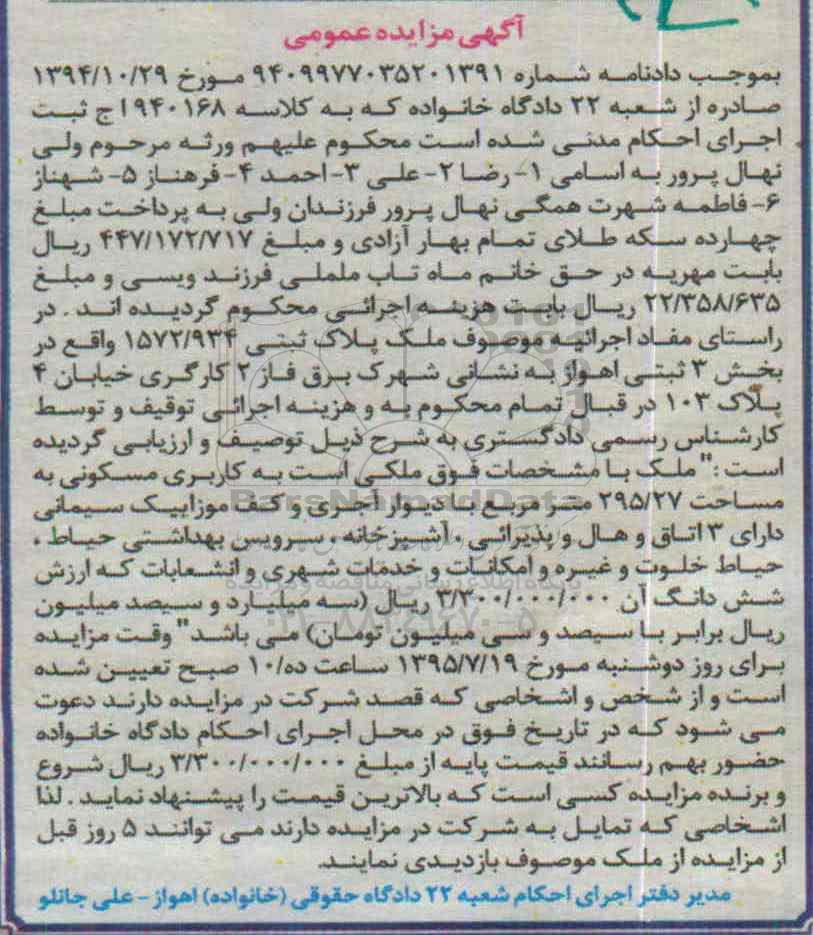 آگهی مزایده عمومی
بموجب دادنامه شماره ۹۴۰۹۹۷۷۰۳۵۲۰۱۳۹۱ مورخ ۱۳۹۴/۱۰/۲۹
صادره از شعبه ۲۲ دادگاه خانواده که به کلاسه ۹۴۰۱۶۸ اج ثبت
اجرای احکام مدنی شده است محکوم علیهم ورثه مرحوم ولی
نهال پرور به اسامی ۱- رضا ۲- علی ۳- احمد ۴- فرهناز ۵- شهناز
۶- فاطمه شهرت همگی نهال پرور فرزندان ولی به پرداخت مبلغ
چهارده سکه طلای تمام بهار آزادی و مبلغ ۴۴۷/۱۷۲/۷۱۷ ریال
بابت مهریه در حق خانم ماه تاب ململی فرزند ویسی و مبلغ
۲۲/۳۵۸/۶۳۵ ریال بابت هزینه اجرائی محکوم گردیده اند . در
راستای مفاد اجرائیه موصوف ملک پلاک ثبتی ۱۵۷۲/۹۳۴ واقع در
بخش ۳ ثبتی اهواز به نشانی شهرک برق فاز ۲ کارگری خیابان ۴
پلاک ۱۰۳ در قبال تمام محکوم به و هزینه اجرائی توقیف و توسط
کارشناس رسمی دادگستری به شرح ذیل توصیف و ارزیابی گردیده
است :" ملک با مشخصات فوق ملکی است به کاربری مسکونی به
مساحت ۲۹۵/۲۷ متر مربع با دیوار آجری و کف موزاییک سیمانی
دارای ۳ اتاق و هال و پذیرائی ، آشپزخانه ، سرویس بهداشتی حیاط ،
حیاط خلوت و غیره و امکانات و خدمات شهری و انشعابات که ارزش
شش دانگ آن ۳/۳۰۰/۰۰۰/۰۰۰ ریال (سه میلیارد و سیصد میلیون
ریال برابر با سیصد و سی میلیون تومان) می باشد" وقت مزایده
برای روز دوشنبه مورخ ۱۳۹۵/۷/۱۹ ساعت ده/۱۰ صبح تعیین شده
است و از شخص و اشخاصی که قصد شرکت در مزایده دارند دعوت
می شود که در تاریخ فوق در محل اجرای احکام دادگاه خانواده
حضور بهم رسانند قیمت پایه از مبلغ ۳/۳۰۰/۰۰۰/۰۰۰ ریال شروع
و برنده مزایده کسی است که بالاترین قیمت را پیشنهاد نماید . لذا
اشخاصی که تمایل به شرکت در مزایده دارند می توانند ۵ روز قبل
از مزایده از ملک موصوف بازدیدی نمایند.
مدیر دفتر اجرای احکام شعبه ۲۲ دادگاه حقوقی (خانواده) اهواز - علی جانلو
BarsNamadData
پایگاه اطلاع رسانی مناقصه و مزایده
۰۲۱-۸۸۳۴۹۶۷۰-۵